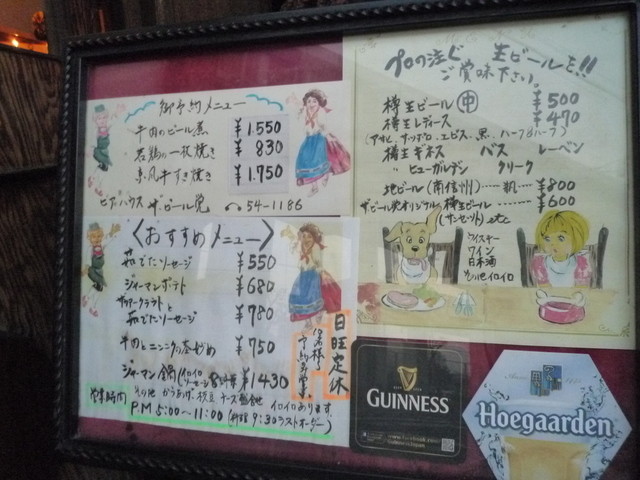 御予約メニュー
牛肉のビール煮 ¥1.550
若鶏の一枚焼き ¥830
牛すき焼き ¥1.750
ビアハウス ザ・ビール党 54-1186
<おすすめメニュー>
茹でたソーセージ ¥550
ジャーマンポテト ¥680
ザワークラウトと
茹でたソーセージ ¥780
牛肉とニンニクの茎炒め ¥750
ジャーマン鍋 (イロイロ ソーセージ ¥1430
その他 からあげ イロイロあります
営業時間
P.M 5:00~11:00 (料理 9:30ラストオーダー)
日旺定休
プロの注ぐ 生ビールを!!
ご賞味下さい。
樽生ビール 中 ¥500
樽生レディース ¥470
(アサヒ、サッポロ、エビス、黒、ハーフ&ハーフ)
樽生ギネス バス レーベン
〃 ヒューガルデン クリーク
地ビール(南信州)-----瓶---¥800
ザ・ビール党オリジナル樽生ビール------¥600
(サンセット)etc
ウイスキー
ワイン
日本酒
その他イロイロ
GUINNESS
Hoegaarden